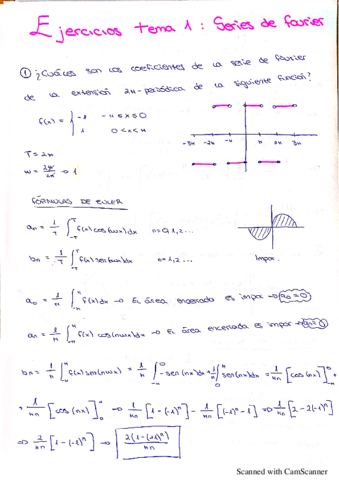 Ejercicios tema 1: Series de fourier
① ¿Cuáles son los coeficientes de la serie de fourier
de la extensión 2π-periódica de la siguiente función?
f(x) = { -1  -π ≤ x ≤ 0
1  0 < x < π
-3π -2π -π π 2π 3π
T = 2π
w = 2π/2π → 1
FÓRMULAS DE EULER
an = 1/T ∫ f(x) cos(nwx) dx  n = 0, 1, 2...
bn = 1/T ∫ f(x) sen(nwx) dx  n = 1, 2...
Impar.
a0 = 1/π ∫ f(x) dx → El área encerrada es impar → a0 = 0
an = 1/π ∫ f(x) cos(nwx) dx → El área encerrada es impar → an = 0
bn = 1/π ∫ f(x) sen(nwx) = 1/π ∫ -sen(nx) dx + 1/π ∫ sen(nx) dx = 1/πn [cos(nx)] +
+ 1/πn [cos(nx)] ⇒ 1/πn [1 - (-1)ⁿ] - 1/πn [(-1)ⁿ - 1] ⇒ 1/πn [2 - 2(-1)ⁿ]
⇒ 2/πn [1 - (-1)ⁿ] → 2(1 - (-1)ⁿ)/πn
Scanned with CamScanner